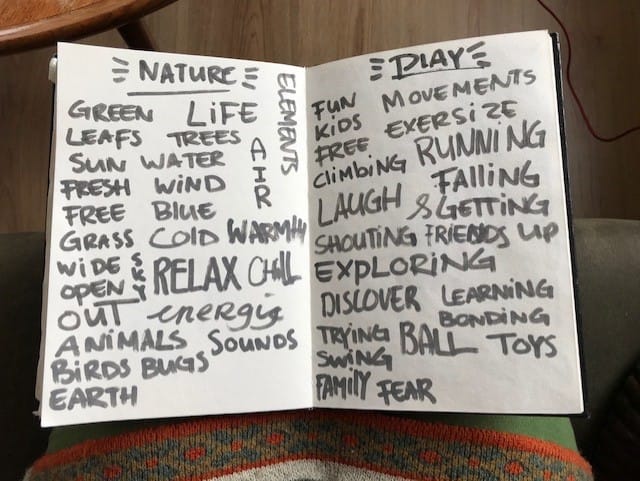 NATURE
ELEMENTS
GREEN LiFE
LEAFS TREES
SUN WATER
AIR
FRESH WiND
FREE BLUE
GRASS COLD WARMTH
WIDE SKY
OPEN RELAX CHiLL
OUT energie
ANiMALS SOUNDS
BiRDS BUGS
EARTH
PLAY
FUN MOVEMENTS
KiDS EXERSiZE
FREE RUNNiNG
Climbing FAlling
LAUGH & GETTiNG UP
SHOUTiNG FRiENDS
EXPLORiNG
DiSCOVER LEARNiNG
BONDiNG
TRYiNG BALL TOYS
SWiNG
FAMilY FEAR